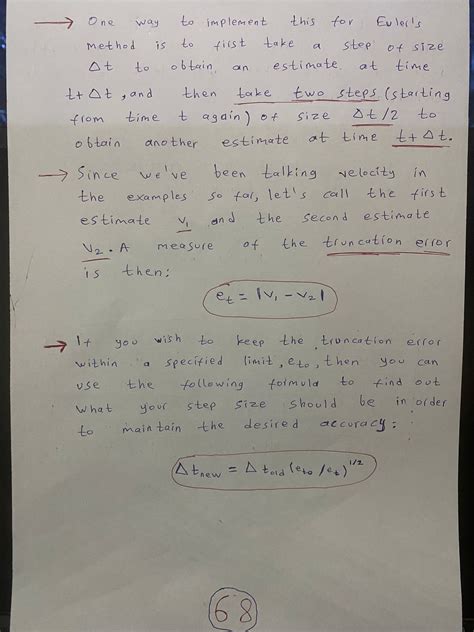 → One way to implement this for Euler's
method is to first take a step of size
Δt to obtain an estimate at time
t+Δt, and then take two steps (starting
from time t again) of size Δt/2 to
obtain another estimate at time t+Δt.
→ Since we've been talking velocity in
the examples so far, let's call the first
estimate v₁ and the second estimate
v₂. A measure of the truncation error
is then:
eₜ = |v₁ - v₂|
→ If you wish to keep the truncation error
within a specified limit, eₜₒ, then you can
use the following formula to find out
what your step size should be in order
to maintain the desired accuracy:
Δt_new = Δt_old (eₜₒ/eₜ)^1/2
68